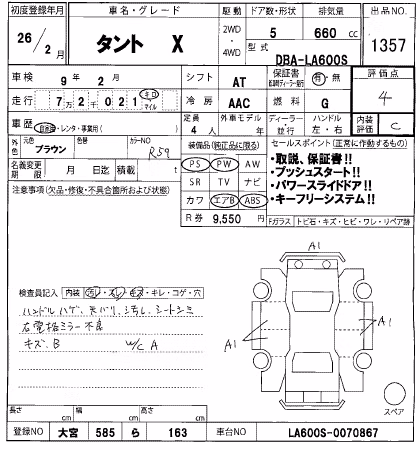 初度登録年月 車名・グレード 駆動 ドア数・形状 排気量 出品NO.
26/2月 タント X 2WD・4WD 5 660 cc 1357
型式 DBA-LA600S
車検 9年 2月 シフト AT 保証書 有・無 評価点 4
走行 7万2千021 キロ マイル 冷房 AAC 燃料 G
車歴 自家用・レンタ・事業用( ) 定員 4人 外車モデル 年 ディーラー 並行 ハンドル 左・右 内装評価 C
外色 元色 ブラウン 色替 カラーNO R59
装備品(純正品に限る) セールスポイント(正常に作動するもの)
名義変更期限 月 日迄 積載 t
PS PW AW ・取説、保証書!!
注意事項(欠品・修復・不具合箇所および状態) SR TV ナビ ・プッシュスタート!!
カワ エアB ABS ・パワースライドドア!!
・キーフリーシステム!!
R券 9,550円 Fガラス トビ石・キズ・ヒビ・ワレ・リペア跡
A1
検査員記入 内装 汚レ・スレ・キズ・キレ・コゲ・穴
ハンドルハゲ、天バリ、シ汚レ、シートシミ
右電格ミラー不良
キズ、B W/C A
A1 A1
スペア
長さ cm 幅 cm 高さ cm
登録NO 大宮 585 ら 163 車台NO LA600S-0070867